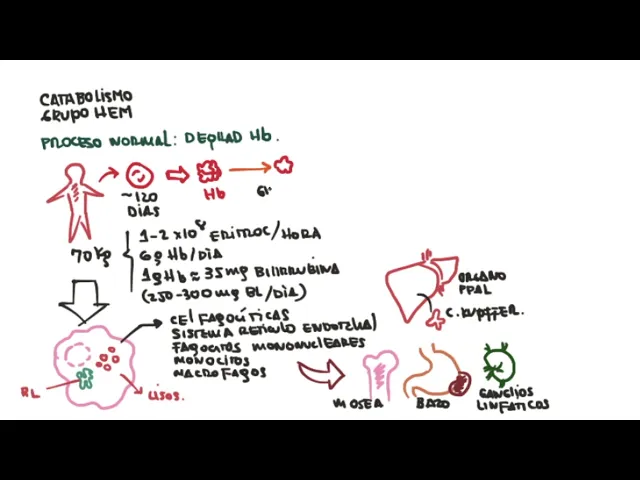 CATABOLISMO
GRUPO HEM
PROCESO NORMAL: DEGRAD Hb.
~120
DIAS
Hb
GR
70 Kg
1-2 x10⁸ ERITROC/HORA
6g Hb/DIA
1g Hb ≈ 35mg BILIRRUBINA
(250-300 mg BL/DIA)
CEL FAGOCITICAS
SISTEMA RETICULO ENDOTELIAL
FAGOCITOS MONONUCLEARES
MONOCITOS
MACROFAGOS
RL
LISOS.
ORGANO
PPAL
C. KUPFFER.
M OSEA
BAZO
GANGLIOS
LINFATICOS